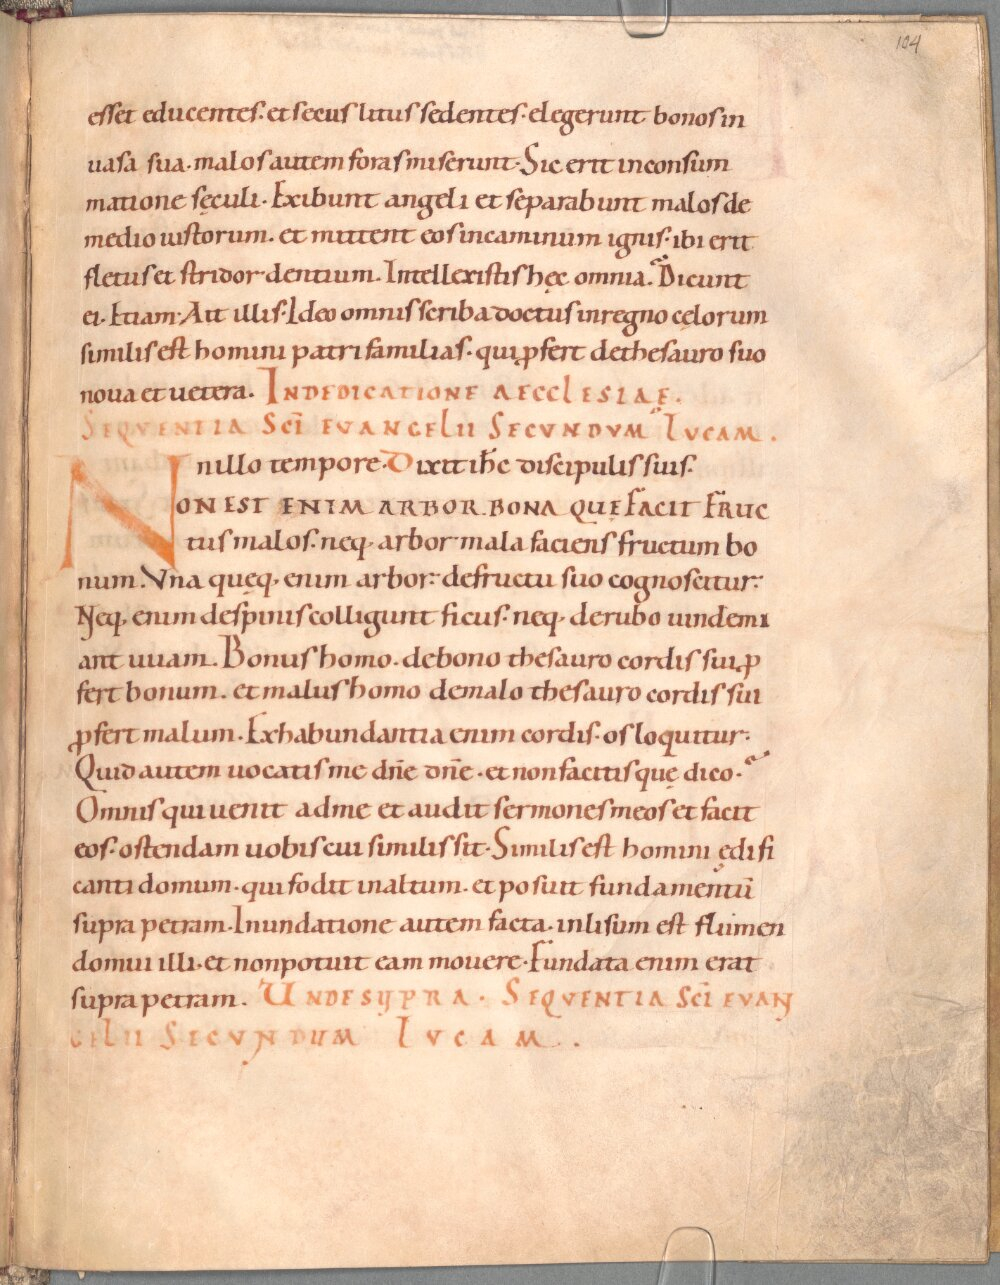 104
esset educentes. et secus litus sedentes. elegerunt bonos in
uasa sua. malos autem foras miserunt. Sic erit in consum
matione sęculi. Exibunt angeli et separabunt malos de
medio iustorum. et mittent eos in caminum ignis. ibi erit
fletus et stridor dentium. Intellexistis hęc omnia. Dicunt
ei. Etiam. Ait illis. Ideo omnis scriba doctus in regno cęlorum
similis est homini patri familias. qui ꝓfert de thesauro suo
noua et uetera. IN DEDICATIONE AECCLESIAE.
SEQVENTIA SCĪ EVANGELII SECVNDVM LVCAM.
N nillo tempore. Dixit ih̄c discipulis suis.
ON EST ENIM ARBOR BONA QUĘ FACIT FRUC
tus malos. neq; arbor mala faciens fructum bo
num. Vna quęq; enim arbor de fructu suo cognoscitur.
Neq; enim de spinis colligunt ficus. neq; de rubo uindemi
ant uuam. Bonus homo. de bono thesauro cordis sui ꝓ
fert bonum. et malus homo de malo thesauro cordis sui
ꝓfert malum. Ex habundantia enim cordis. os loquitur.
Quid autem uocatis me dn̄e dn̄e. et non facitis quę dico.
Omnis qui uenit ad me et audit sermones meos et facit
eos. ostendam uobis cui similis sit. Similis est homini ędifi
canti domum. qui fodit in altum. et posuit fundamentū
supra petram. Inundatione autem facta. inlisum est flumen
domui illi. et non potuit eam mouere. Fundata enim erat
supra petram. UNDE SUPRA. SEQVENTIA SCĪ EVAN
GELII SECUNDUM LVCAM.